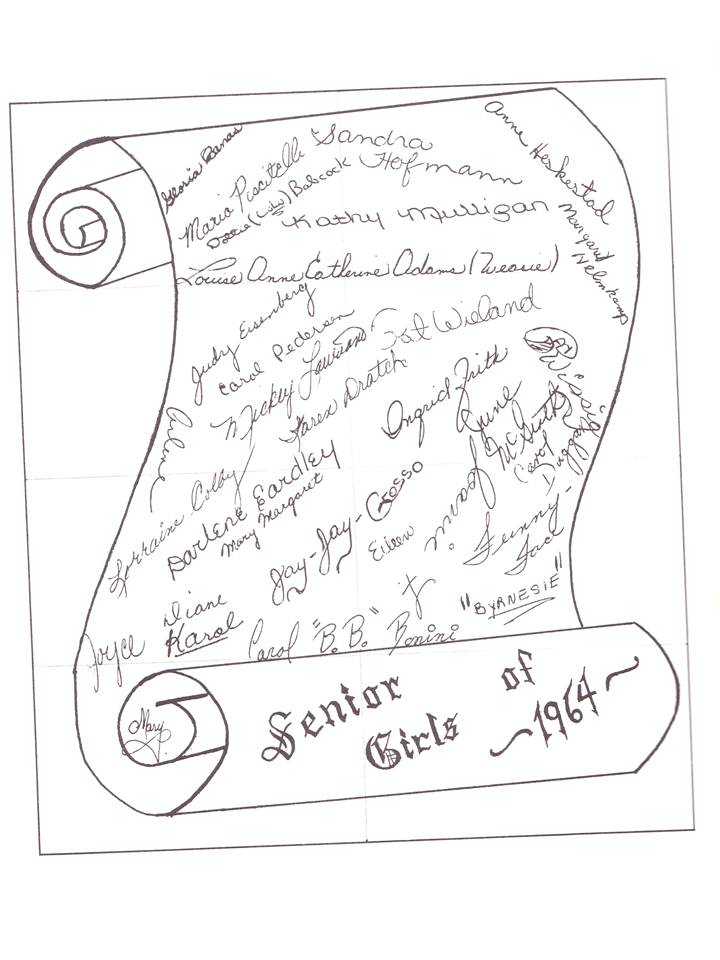 Gloria Banas
Maria Piscitelli
Sandra
Hofmann
Anne Heskestad
Dottie (Lulu) Babcock
Kathy Mulligan
Margaret
Helmkamp
Louise Anne Catherine Adams (Weasie)
Judy Eisenberg
Carol Pedersen
Mickey
Pat Wieland
Karen Dratch
Ingrid Frith
Arlene
June
Lorraine Colby
Darlene Eardley
Mary Margaret
Jay-Jay-Grosso
Eileen
Carol
Duggan
Funny-
Face
Diane
Karol
Joyce
Carol "B.B." Bonini
"BYRNESIE"
Mary
P.
Senior
of
Girls
~1964~